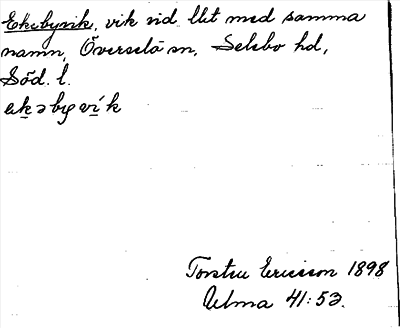 Ekebyvik, vik vid llet med samma
namn, Överselö sn, Selebo hd,
Söd. l.
ekəbyvik
Torsten Ericsson 1898
Ulma 41:53.